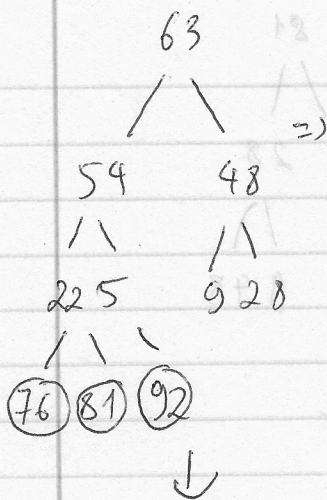 63
=)
54 48
22 5 9 28
76 81 92